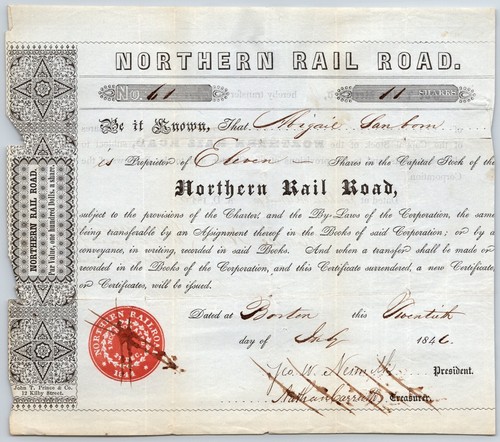 NORTHERN RAIL ROAD.
No. 61 11 SHARES
Be it Known, That Abigail Sanborn
is Proprietor of Eleven — Shares in the Capital Stock of the
Northern Rail Road,
subject to the provisions of the Charter, and the By-Laws of the Corporation, the same
being transferable by an Assignment thereof in the Books of said Corporation; or by a
conveyance, in writing, recorded in said Books. And when a transfer shall be made or
recorded in the Books of the Corporation, and this Certificate surrendered, a new Certificate
or Certificates, will be issued.
Dated at Boston this Twentieth
day of July 1846.
Geo. W. Nesmith President.
Nathan Carruth Treasurer.
NORTHERN RAIL ROAD.
Par Value, one hundred Dolls. a share.
NORTHERN RAILROAD
John T. Prince & Co.
12 Kilby Street.